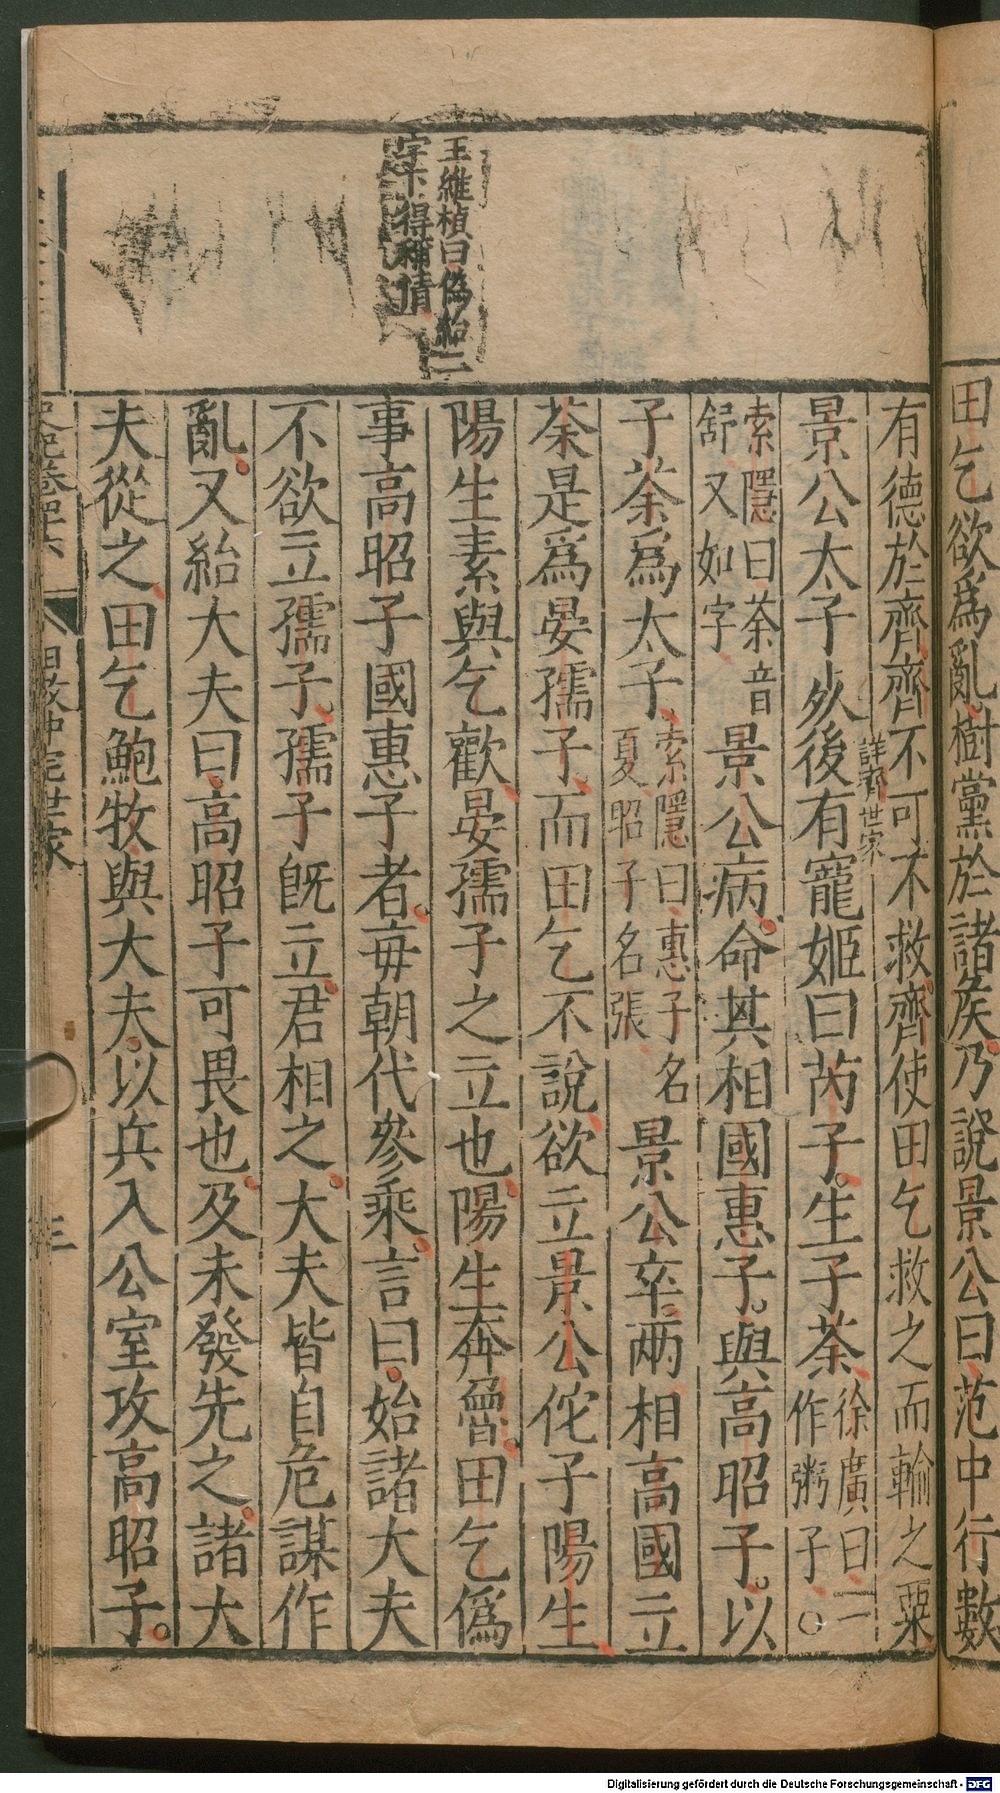 田乞欲爲亂樹黨於諸矦乃說景公曰范中行數
有德於齊齊不可不救齊使田乞救之而輸之粟
詳齊世家
景公太子歿後有寵姬曰芮子生子荼徐廣曰一
作粥子○
索隱曰荼音
舒又如字景公病命其相國惠子與高昭子以
子荼爲太子索隱曰惠子名
夏昭子名張景公卒兩相高國立
荼是爲晏孺子而田乞不說欲立景公佗子陽生
陽生素與乞歡晏孺子之立也陽生奔魯田乞僞
事高昭子國惠子者每朝代參乘言曰始諸大夫
不欲立孺子孺子旣立君相之大夫皆自危謀作
亂又紿大夫曰高昭子可畏也及未發先之諸大
夫從之田乞鮑牧與大夫以兵入公室攻高昭子
王維楨曰僞紿二
字下得稱情
史記卷四十六
田敬仲完世家
三
Digitalisierung gefördert durch die Deutsche Forschungsgemeinschaft - DFG